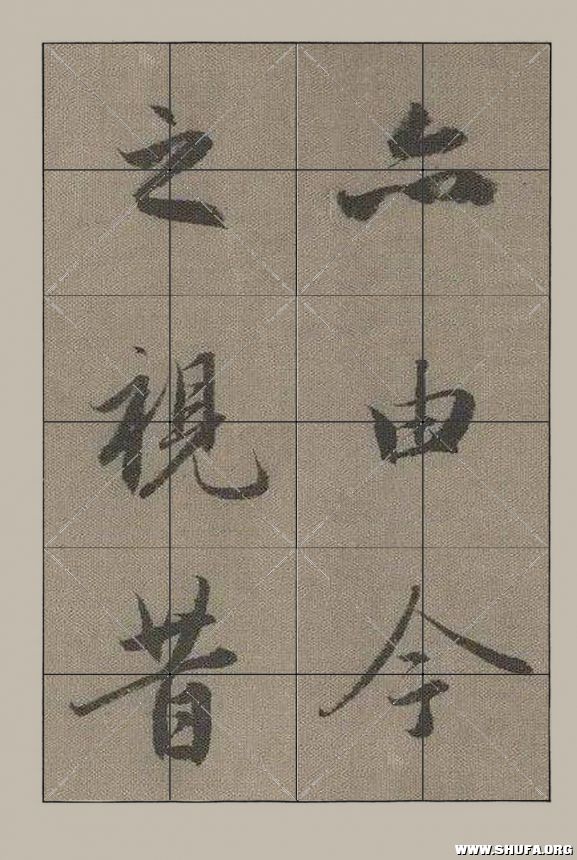 亦由今
之視昔
WWW.SHUFA.ORG